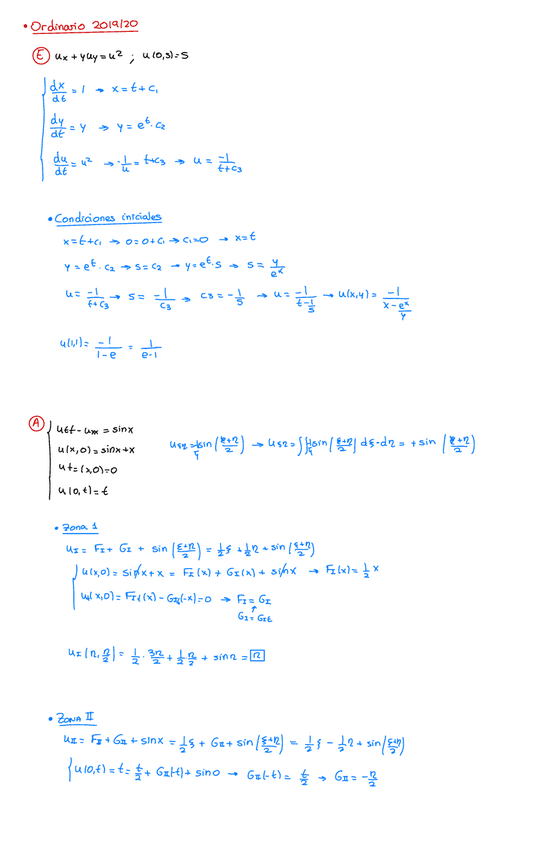 • Ordinario 2019/20
E ux + yuy = u² ; u(0,s)=s
dx/dt = 1 → x = t+c₁
dy/dt = y → y = e^t·c₂
du/dt = u² → -1/u = t+c₃ → u = -1/(t+c₃)
• Condiciones iniciales
x=t+c₁ → 0=0+c₁ → c₁=0 → x=t
y = e^t·c₂ → s=c₂ → y=e^t·s → s = y/e^x
u = -1/(t+c₃) → s = -1/c₃ → c₃ = -1/s → u = -1/(t-1/s) → u(x,y) = -1/(x - e^x/y)
u(1,1) = -1/(1-e) = 1/(e-1)
A utt - uxx = sinx
u(x,0) = sinx+x
ut=(x,0)=0
u(0,t)=t
• Zona 1
uI = FI + GI + sin((ξ+η)/2) = 1/2 ξ + 1/2 η + sin((ξ+η)/2)
u(x,0) = sinx + x = FI(x) + GI(x) + sinx → FI(x) = 1/2 x
FI = GI
uI(π, π/2) = 1/2 · 3π/2 + 1/2 π/2 + sinπ = π
• Zona II
uII = FII + GII + sinx = 1/2 ξ + GII + sin((ξ+η)/2) = 1/2 ξ - 1/2 η + sin((ξ+η)/2)
u(0,t) = t = t/2 + GII(-t) + sin0 → GII(-t) = t/2 → GII = -η/2